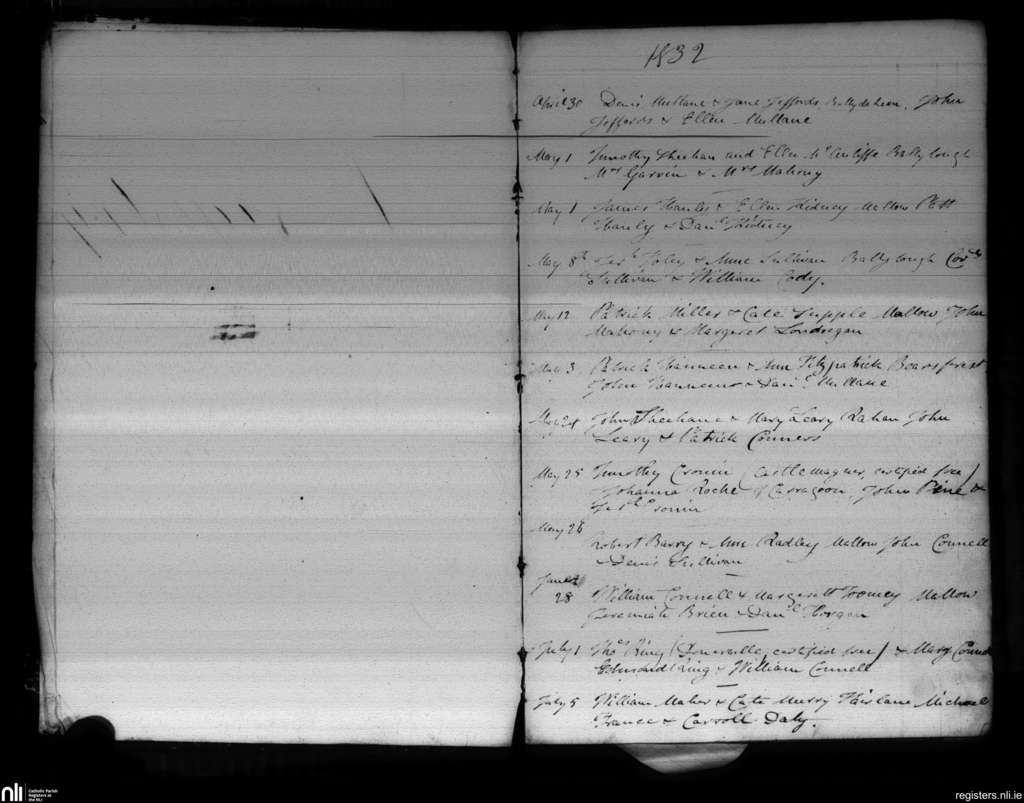 1832
April 30 Denis Mullane & Jane Jeffords Ballydaheen, John
Jeffords & Ellen Mullane
May 1 Timothy Sheehan and Ellen McAuliffe Ballylough
Mrs Garvin & Mrs Mahony
May 1 James Hanley & Ellen Kidney Mallow Patt
Hanly & Danl Kidney
May 8th Jerh Foley & Anne Sullivan Ballylough Cors
Sullivan & William Cody.
May 12 Patrick Miller & Cate Supple Mallow John
Mahony & Margaret Londregan
May 3 Patrick Hanneen & Ann Fitzpatrick Bearsforest
John & Danl Mullane
May 24 John Sheehane & Mary Leary Rahan John
Leary & Patrick Conners
May 25 Timothy Cronin Castlemagner, certified free)
Johanna Roche of Carragoon, John Pine &
Jerh Cronin
May 26
Robert Barry & Ann Radley Mallow John Connell
& Denis Sullivan
June
28 William Connell & Margarett Toomey Mallow
Jeremiah Brien & Danl Horgan
July 1 Thos King (Doneraile, certified free) & Mary
Edmond King & William Connell
July 5 William Maher & Cate Murry Fairlane Michael
France & Carroll Daly.
nli
Catholic Parish
Registers at
the NLI
registers.nli.ie